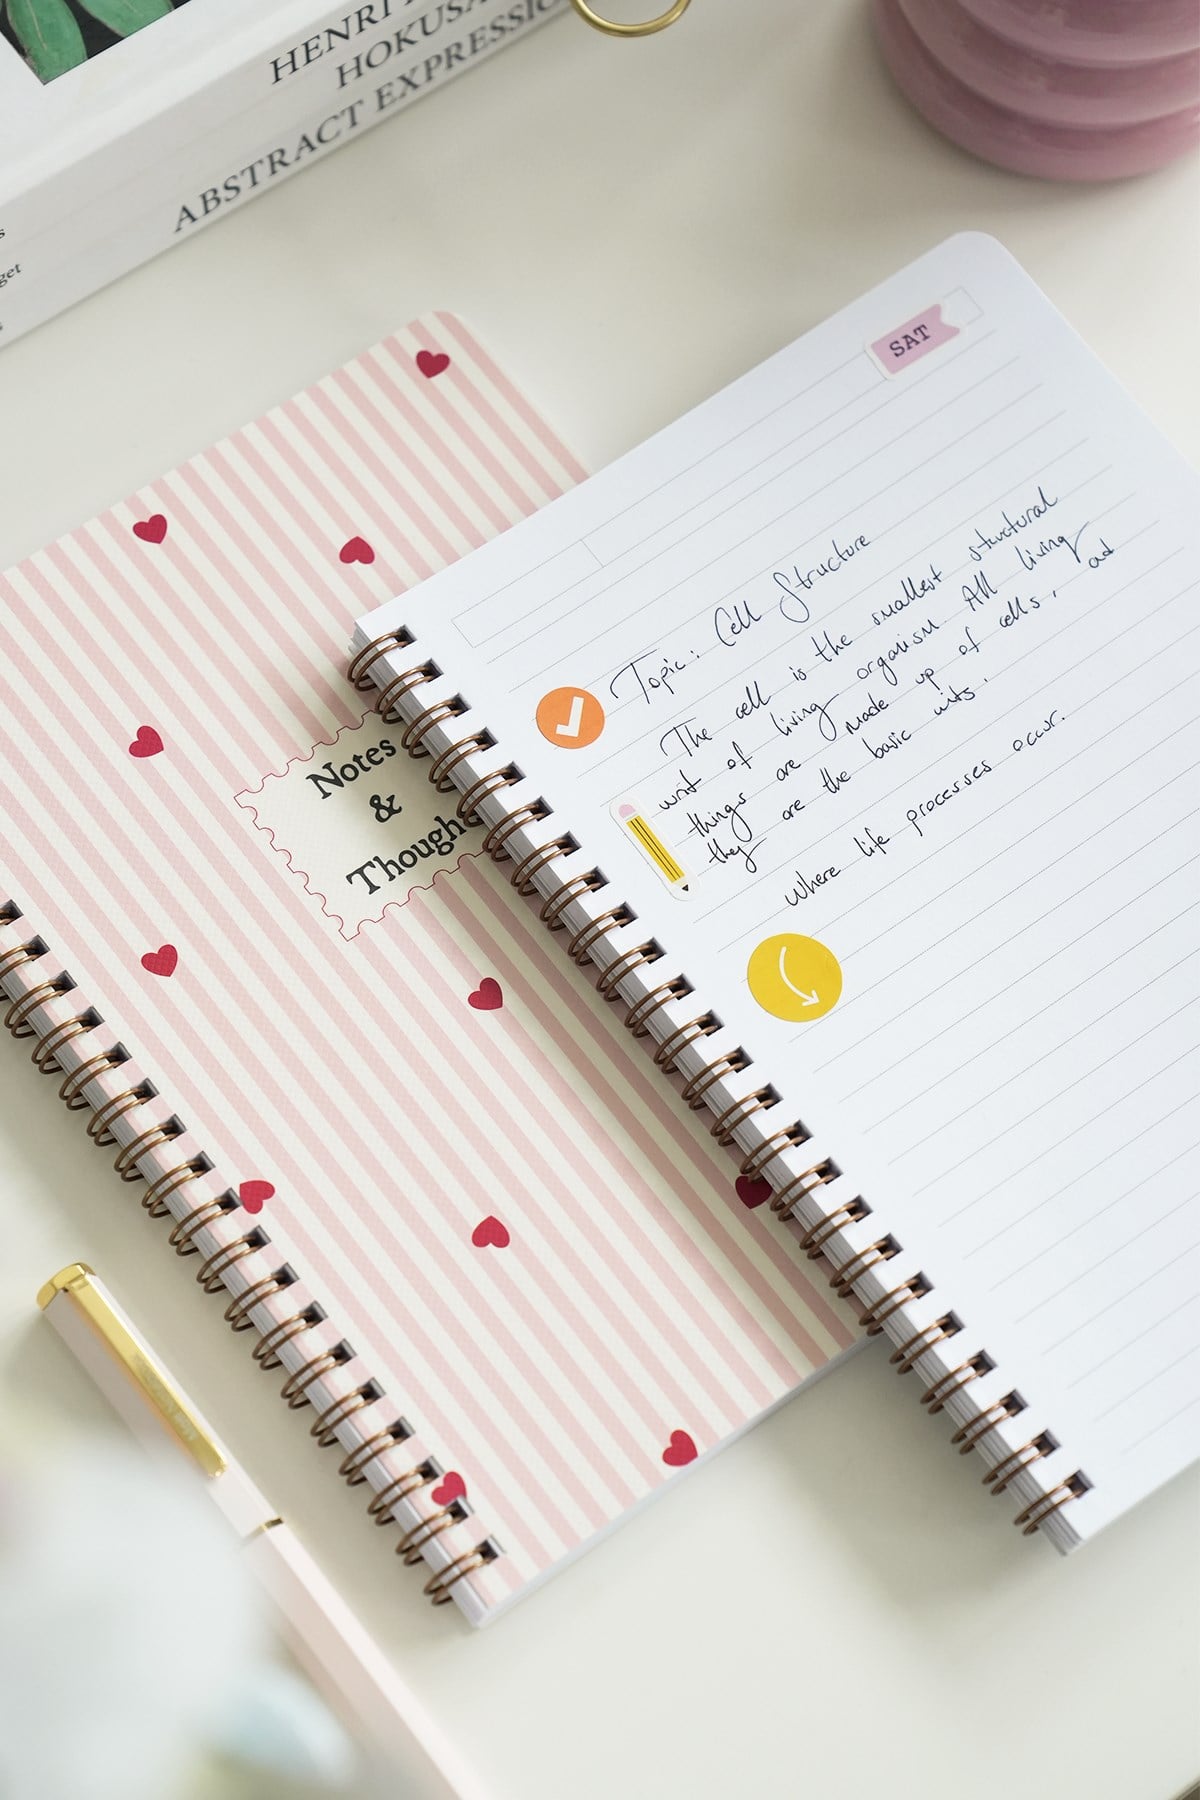 HENRI
HOKUSA
ABSTRACT EXPRESSIO
get
SAT
Topic: Cell Structure
The cell is the smallest structural
unit of living organism. All living
things are made up of cells, ad
they are the basic units.
Where life processes occur.
Notes
&
Though